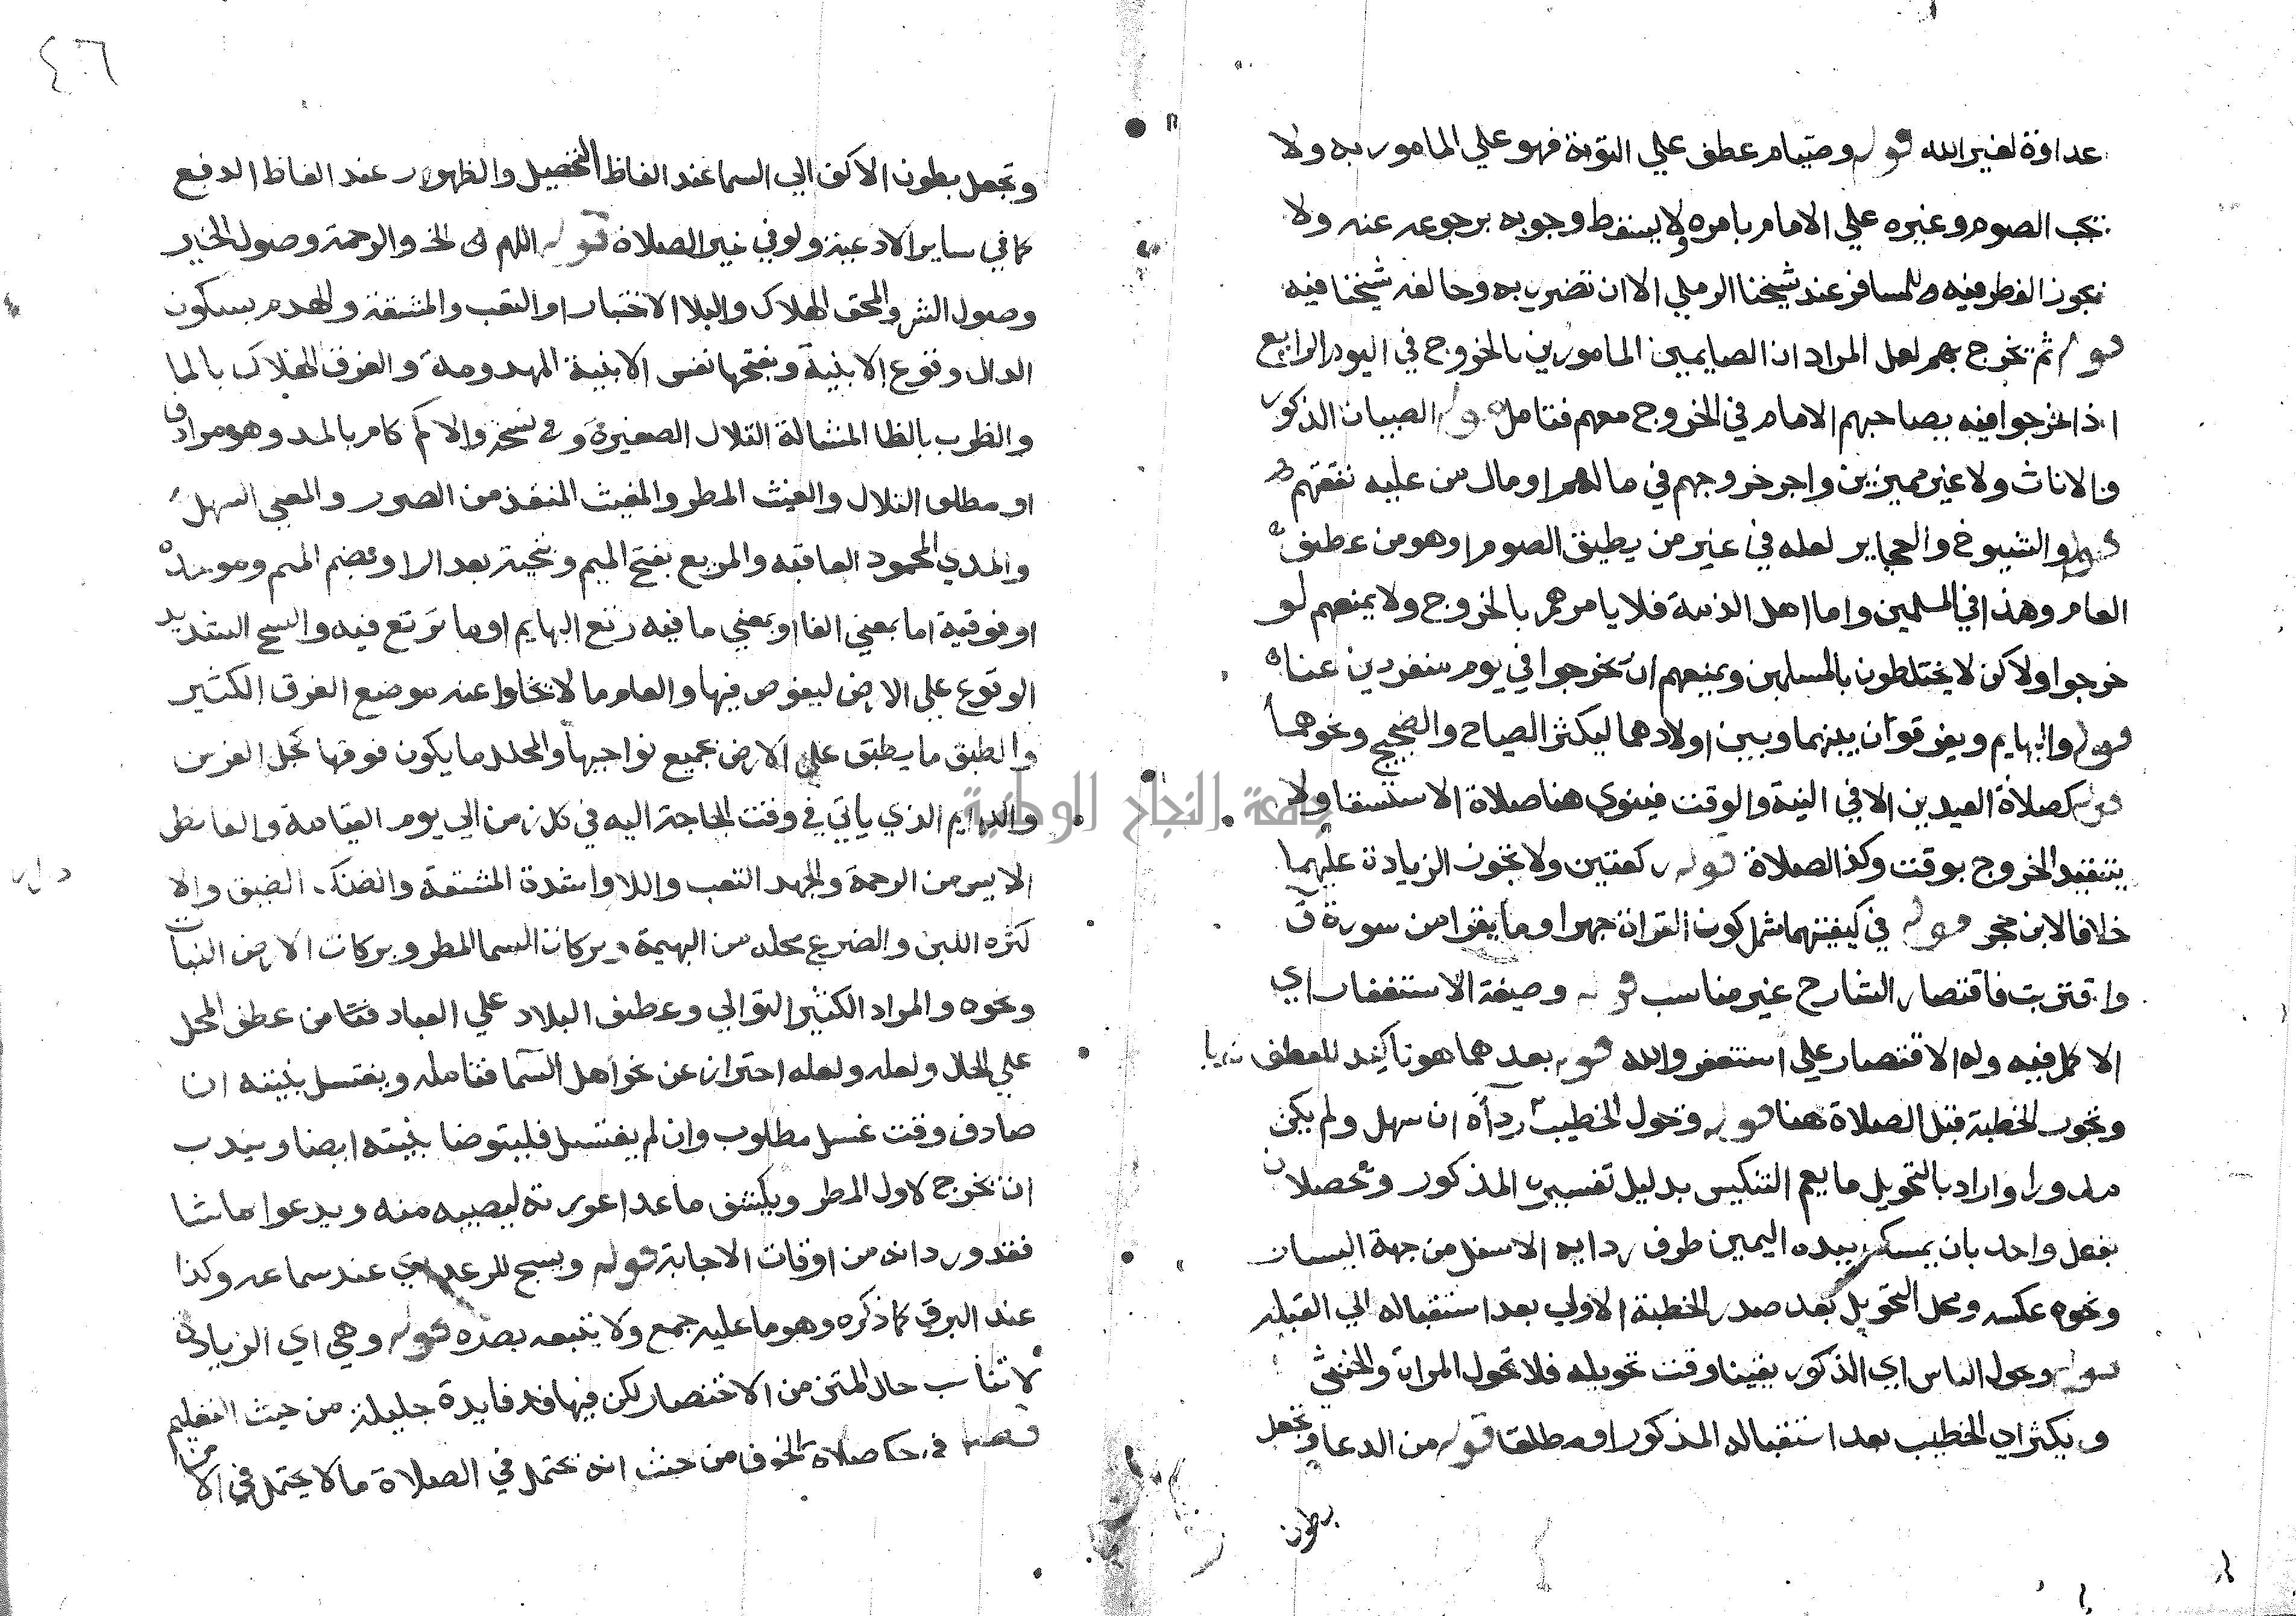 عداوة لغير الله قوله وصيام عطف علي التوبة فهو علي المامور به ولا
يجب الصوم وغيره علي الامام بامره ولا يسقط وجوبه برجوعه عنه ولا
يجوز الفطر فيه وللمسافر عند شيخنا الرملي الا ان تضرر به وخالفه شيخنا فيه
قوله ثم يخرج بهم لعل المراد ان الصايمين المامورين بالخروج في اليوم الرابع
اذا خرجوا فيه يصاحبهم الامام في الخروج معهم فتامل قوله الصبيان الذكور
والاناث ولا غير مميزين واجر خروجهم في مالهم او مال من عليه نفقتهم
قوله والشيوخ والعجايز لعله في غير من يطيق الصوم او هو من عطف
العام وهذا في المسلمين واما اهل الذمة فلا يامرهم بالخروج ولا يمنعهم لو
خرجوا ولاكن لا يختلطون بالمسلمين ويمنعهم ان يخرجوا في يوم منفردين عنا
قوله والبهايم ويفرقوان بينهما وبين اولادهما ليكثر الصياح والضجيج ونحوهما
قوله كصلاة العيدين الا في النية والوقت فينوي هنا صلاة الاستسقا ولا
يتقيد الخروج بوقت وكذا الصلاة قوله ركعتين ولا تجوز الزيادة عليهما
خلافا لابن حجر قوله في كيفيتهما شمل كون القراة جهرا وما يقرا من سورة ق
واقتربت فاقتصار الشارح غير مناسب قوله وصيغة الاستغفار اي
الاكمل فيه وله الاقتصار علي استغفر والله قوله بعدهما هو تاكيد للعطف
وتجوز الخطبة قبل الصلاة هنا قوله وتحول الخطيب رداه ان سهل ولم يكن
مدورا واراد بالتحويل ما يعم التنكيس بدليل تفسيره المذكور ويحصلان
بفعل واحد بان يمسك بيده اليمين طرف ردايه الاسفل من جهة اليسار
ونحوه عكسه ومحل التحويل بعد صدر الخطبة الاولي بعد استقباله الي القبلة
قوله وحول الناس اي الذكور يقينا وقت تحويله فلا تحول المراة والخنثي
ويكثر اي الخطيب بعد استقباله المذكور او مطلقا قوله من الدعا وتجعل
بطون
٤٦
وتجعل بطون الاكف الي السما عند الفاظ التحصيل والظهور عند الفاظ الدفع
كما في ساير الادعية ولو في غير الصلاة قوله اللهم الخ والرحمة وصول الخير
وصول الشر والمحق الهلاك والبلا الاختبار او التعب والمشقة والهدم بسكون
الدال وقوع الابنية وبفتحها نفس الابنية المهدومة والغرق الهلاك بالما
والظرب بالظا المشالة التلال الصغيرة وفي نسخة والاكم كام بالمد وهو مرادف
او مطلق التلال والغيث المطر والمغيث المنقذ من الضرر والمعني السهل
والمدي المحمود العاقبة والمريع بفتح الميم وتحتية بعد الرا وبضم الميم وموحدة
او فوقية اما بمعني الفا او بمعني ما فيه رتع البهايم او ما ترتع فيه والسح الشديد
الوقوع علي الارض ليغوص فيها والعام ما لا يخلوا عنه موضع الغرق الكثير
والطبق ما يطبق علي الارض جميع نواحيها والمجلل ما يكون فوقها كجل الفرس
والدايم الذي ياتي في وقت الحاجة اليه في كل زمن الي يوم القيامة والقانطي
الايس من الرحمة والجهد التعب واللاوا شدة المشقة والضنك الضيق والا
كثره اللبن والضرع محله من البهيمة وبركات السما المطر وبركات الارض النبات
ونحوه والمراد الكثير التوالي وعطف البلاد علي العباد فتا من عطف المحل
علي الحال ولعله ولعله احتراز عن نحو اهل السما فتامله ويغتسل بنيته ان
صادف وقت غسل مطلوب وان لم يغتسل فليتوضا بنيته ايضا ويندب
ان تخرج لاول المطر ويكشف ما عدا عورته ليصيبه منه ويدعوا ما شا
فقد ورد انه من اوقات الاجابة قوله ويسبح للرعد اي عند سماعه وكذا
عند البرق كما ذكره وهو ما عليه جمع ولا يتبعه بصره قوله وهي اي الزيادة
لا تناسب حال المتن من الاختصار لكن فيها فايدة جليلة من حيث التعليم
فصل في حكم صلاة الخوف من حيث انه يحتمل في الصلاة ما لا يحتمل في الامن
جامعة النجاح الوطنية